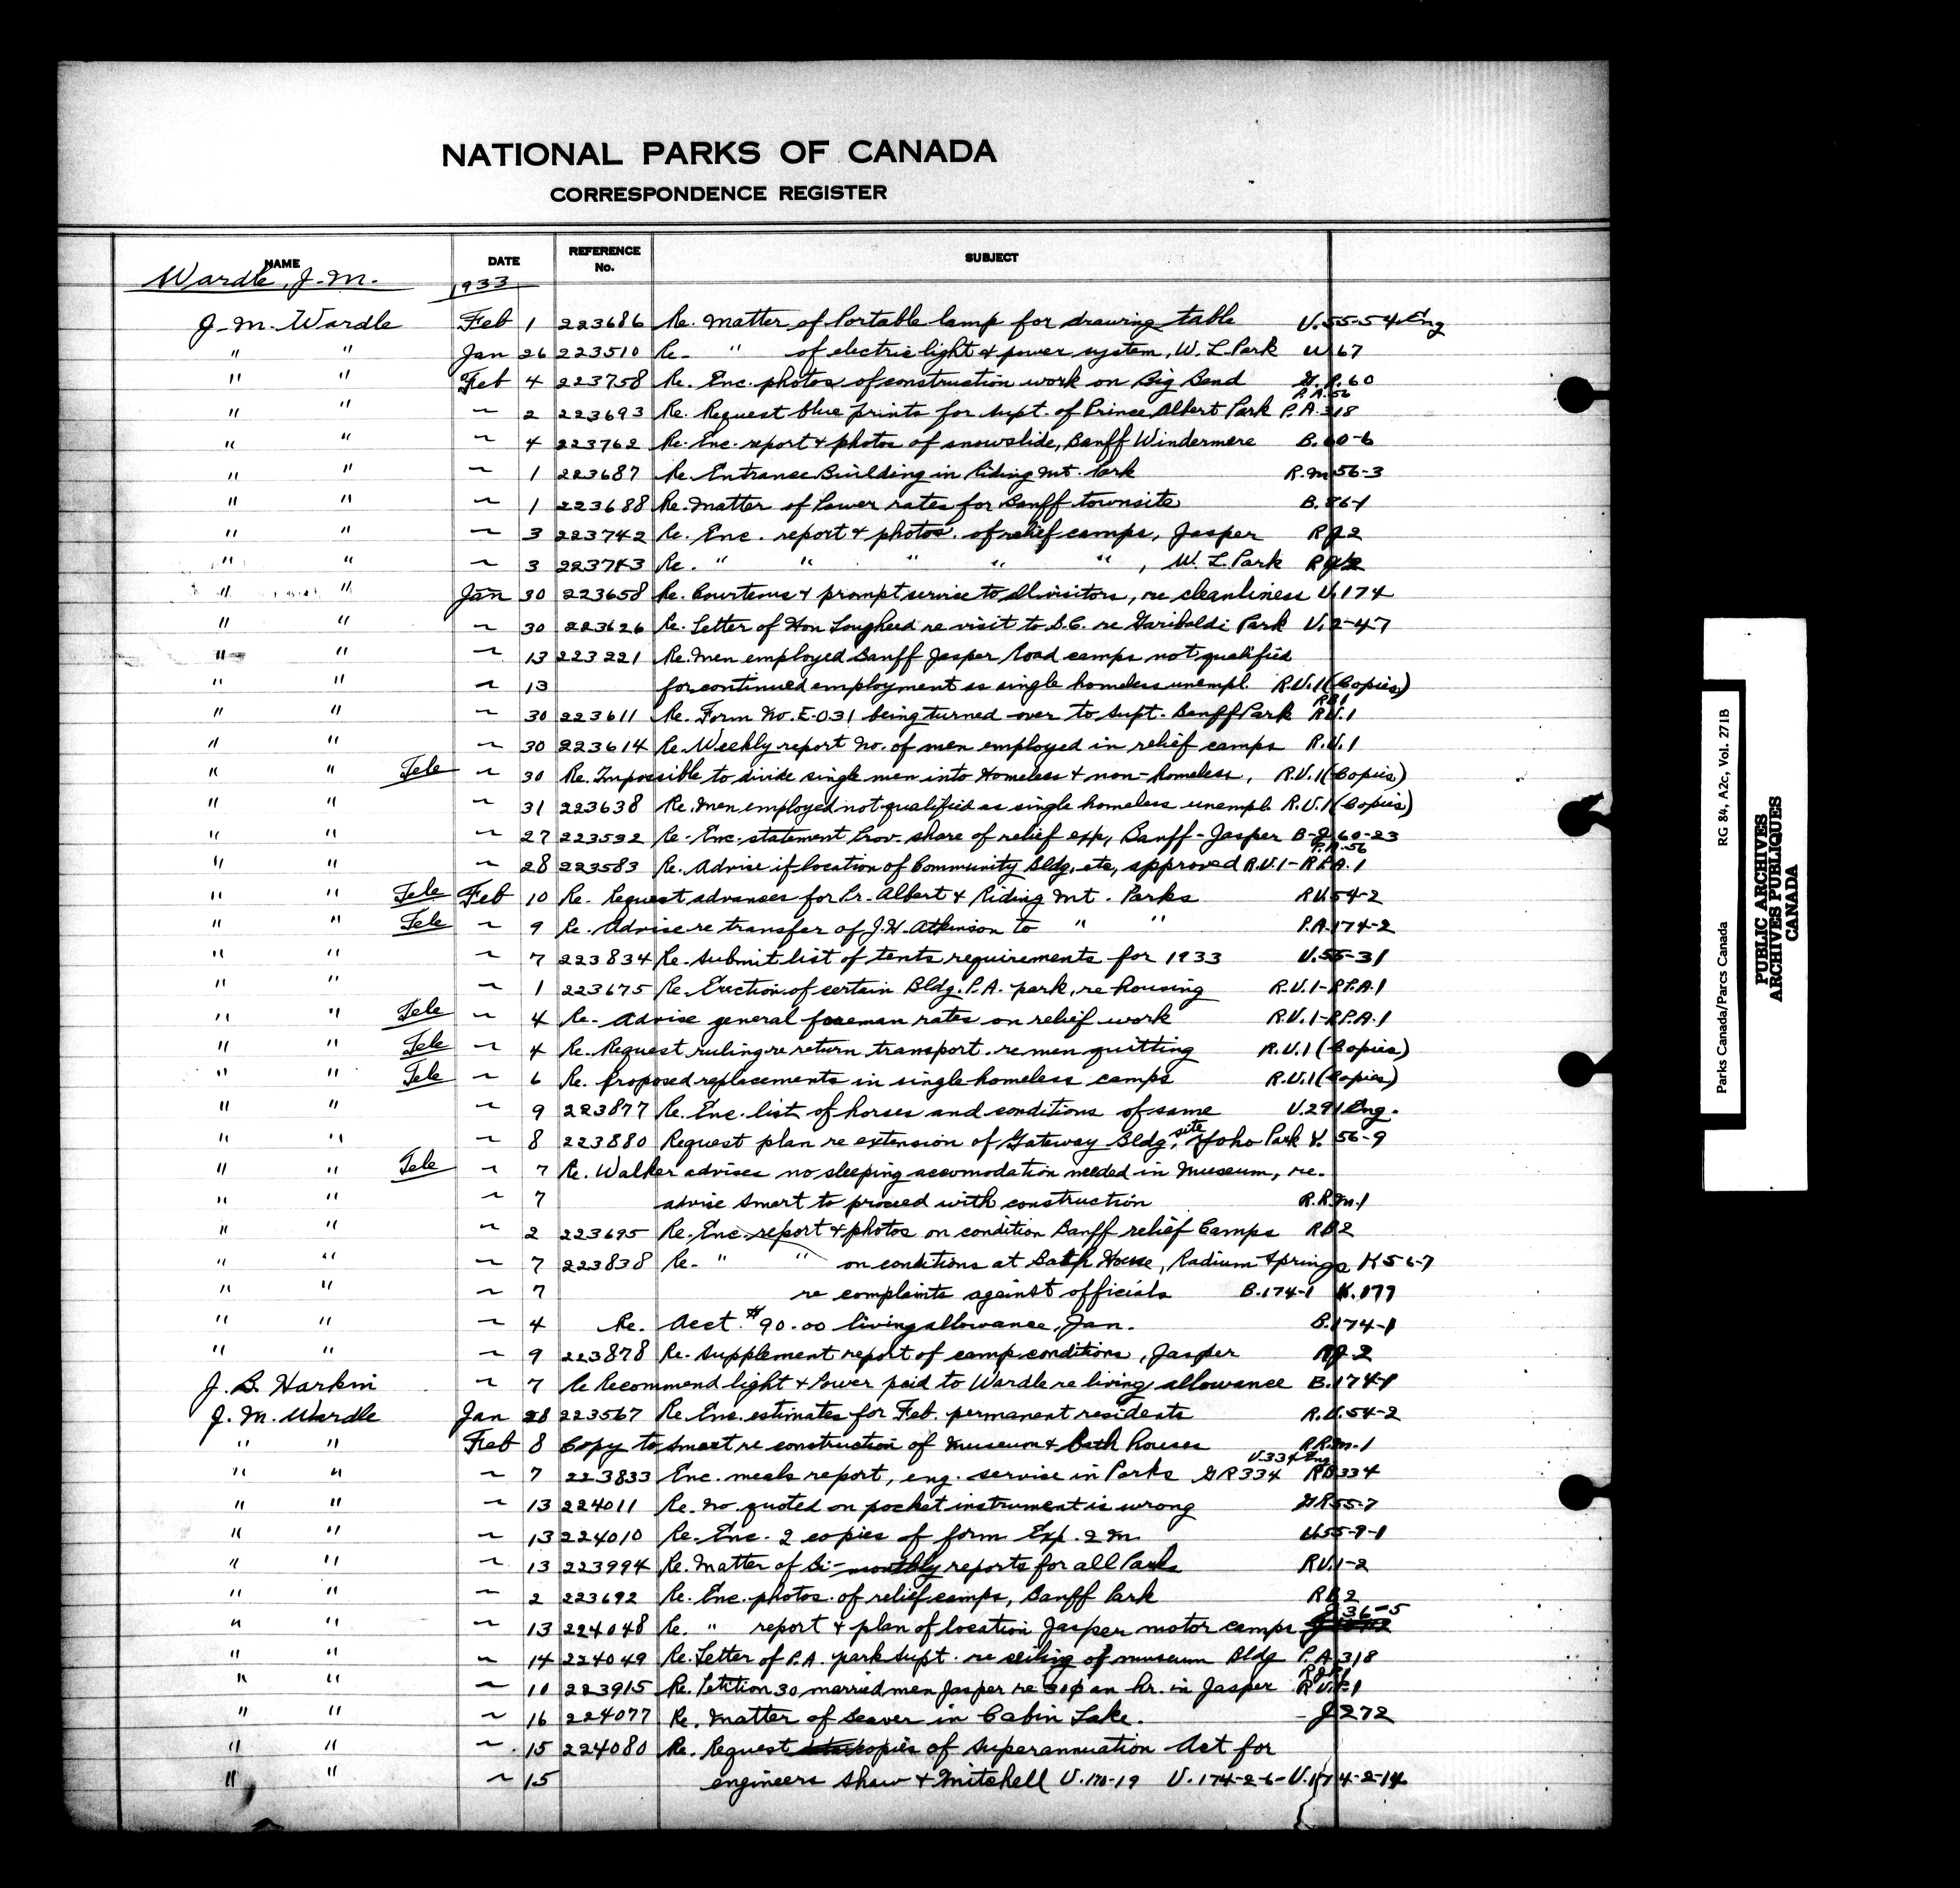 NATIONAL PARKS OF CANADA
CORRESPONDENCE REGISTER
NAME DATE REFERENCE No. SUBJECT
Wardle, J.M. 1933
J.M. Wardle Feb 1 223686 Re. Matter of Portable lamp for drawing table U.55-54 Eng
" " Jan 26 223510 Re. " of electric light & power system, W. L. Park W 67
" " Feb 4 223758 Re. Enc. photos of construction work on Big Bend G.R.60
" " ~ 2 223693 Re. Request blue prints for Supt. of Prince Albert Park P.A.56 P.A.318
" " ~ 4 223762 Re. Enc. report & photos of snowslide, Banff Windermere B.60-6
" " ~ 1 223687 Re. Entrance Building in Riding Mt. Park R.M 56-3
" " ~ 1 223688 Re. Matter of Power rates for Banff townsite B.86-1
" " ~ 3 223742 Re. Enc. report & photos. of relief camps, Jasper RJ2
" " ~ 3 223743 Re. " " " " " , W. L. Park
" " Jan 30 223658 Re. Courteous & prompt service to all visitors, re cleanliness U.174
" " ~ 30 223626 Re. Letter of Hon Lougheed re visit to B.C. re Garibaldi Park U.2-47
" " ~ 13 223221 Re. Men employed Banff Jasper Road camps not qualified
" " ~ 13 for continued employment as single homeless unempl. R.U.1 (Copies)
" " ~ 30 223611 Re. Form No. E-031 being turned over to Supt. Banff Park RB1 RU.1
" " ~ 30 223614 Re. Weekly report No. of men employed in relief camps R.U.1
" " Tele ~ 30 Re. Impossible to divide single men into Homeless & non-homeless, R.U.1 (Copies)
" " ~ 31 223638 Re. Men employed not qualified as single homeless unempl. R.U.1 (Copies)
" " ~ 27 223532 Re. Enc. statement Prov. share of relief exp, Banff-Jasper B-J.60-23
" " 28 223583 Re. Advise if location of Community Bldg, etc, approved P.A.56 R.U.1-RP.A.1
" " Tele Feb 10 Re. Request advances for Pr. Albert & Riding Mt. Parks RU.54-2
" " Tele ~ 9 Re. Advise re transfer of J.H. Atkinson to " " P.A.174-2
" " ~ 7 223834 Re. Submit list of tents requirements for 1933 U.55-31
" " ~ 1 223675 Re. Erection of certain Bldg. P.A. park, re housing R.U.1-RP.A.1
" " Tele ~ 4 Re. Advise general foreman rates on relief work R.U.1-RP.A.1
" " Tele ~ 4 Re. Request ruling re return transport. re men quitting R.U.1 (Copies)
" " Tele ~ 6 Re. Proposed replacements in single homeless camps R.U.1 (Copies)
" " ~ 9 223877 Re. Enc. list of horses and conditions of same U.291 Eng.
" " ~ 8 223880 Request plan re extension of Gateway Bldg, site, Yoho Park Y. 56-9
" " Tele ~ 7 Re. Walker advises no sleeping accomodation needed in Museum, re.
" " ~ 7 advise Smart to proceed with construction R.R.M.1
" " ~ 2 223695 Re. Enc. report & photos on condition Banff relief Camps RB2
" " ~ 7 223838 Re. " " on conditions at Bath House, Radium Springs K56-7
" " ~ 7 re complaints against officials B.174-1 K.177
" " ~ 4 Re. Acct. $90.00 living allowance, Jan. B.174-1
" " ~ 9 223878 Re. Supplement report of camp conditions, Jasper RJ.2
J. B. Harkin ~ 7 Re Recommend light & Power paid to Wardle re living allowance B.174-1
J. M. Wardle Jan 28 223567 Re. Enc. estimates for Feb. permanent residents R.U.54-2
" " Feb 8 Copy to Smart re construction of Museum & Bath houses RR.M-1
" " ~ 7 223833 Enc. meals report, eng. service in Parks GR334 U.334 Eng RB334
" " ~ 13 224011 Re. No. quoted on pocket instrument is wrong GR55-7
" " ~ 13 224010 Re. Enc. 2 copies of form Exp. 2 M. U.55-9-1
" " ~ 13 223994 Re. Matter of Bi-monthly reports for all Parks RU.1-2
" " ~ 2 223692 Re. Enc. photos. of relief camps, Banff Park RB2
" " ~ 13 224048 Re. " report & plan of location Jasper motor camps J 36-5
" " ~ 14 224049 Re. Letter of P.A. park Supt. re ceiling of museum Bldg P.A 318
" " ~ 10 223915 Re. Petition 30 married men Jasper re 30¢ an hr. in Jasper RJ.1 R.U.1
" " ~ 16 224077 Re. Matter of Beaver in Cabin Lake. - J 272
" " ~ 15 224080 Re. Request copies of Superannuation Act for
" " ~ 15 engineers Shaw & Mitchell U.170-19 U.174-2-6-U.174-2-14
Parks Canada/Parcs Canada RG 84, A2c, Vol. 271B
PUBLIC ARCHIVES
ARCHIVES PUBLIQUES
CANADA